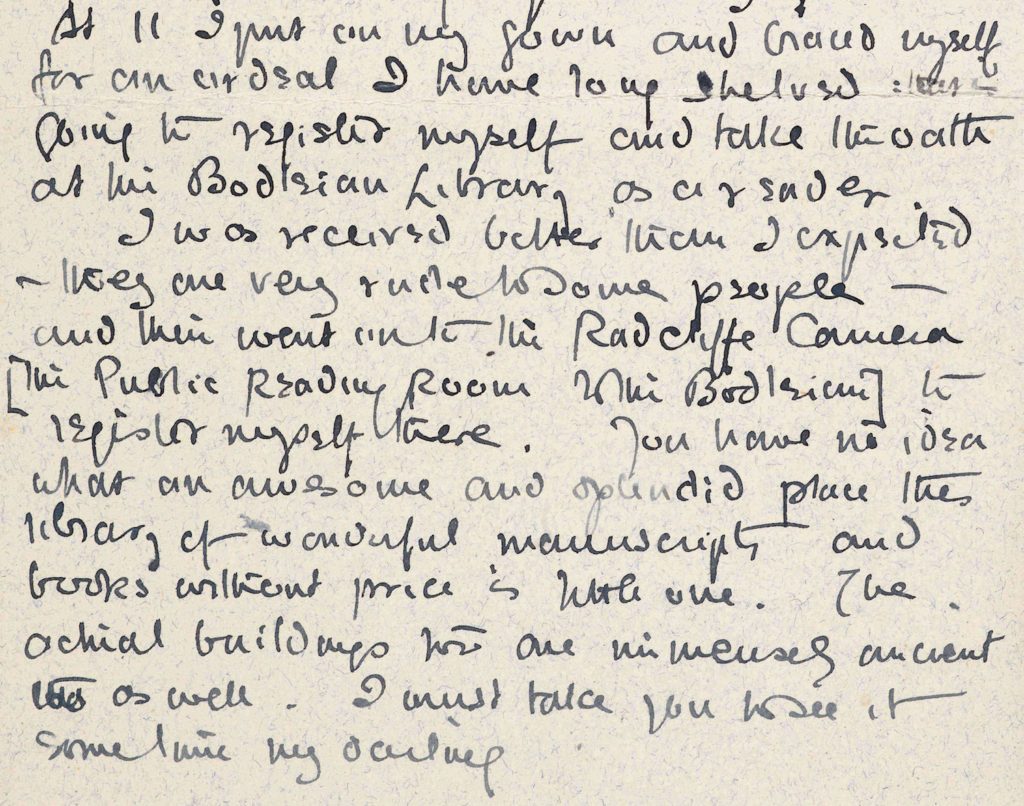 At 11 I put on my gown and braced myself
for an ordeal I have long shelved that is
going to register myself and take the oath
at the Bodleian Library as a reader.
I was received better than I expected
– they are very rude to some people —
and then went on to the Radcliffe Camera
[the Public Reading Room to the Bodleian] to
register myself there. You have no idea
what an awesome and splendid place this
library of wonderful manuscripts and
books without price is little one. The
actual buildings too are immensely ancient
as well. I must take you to see it
sometime my darling